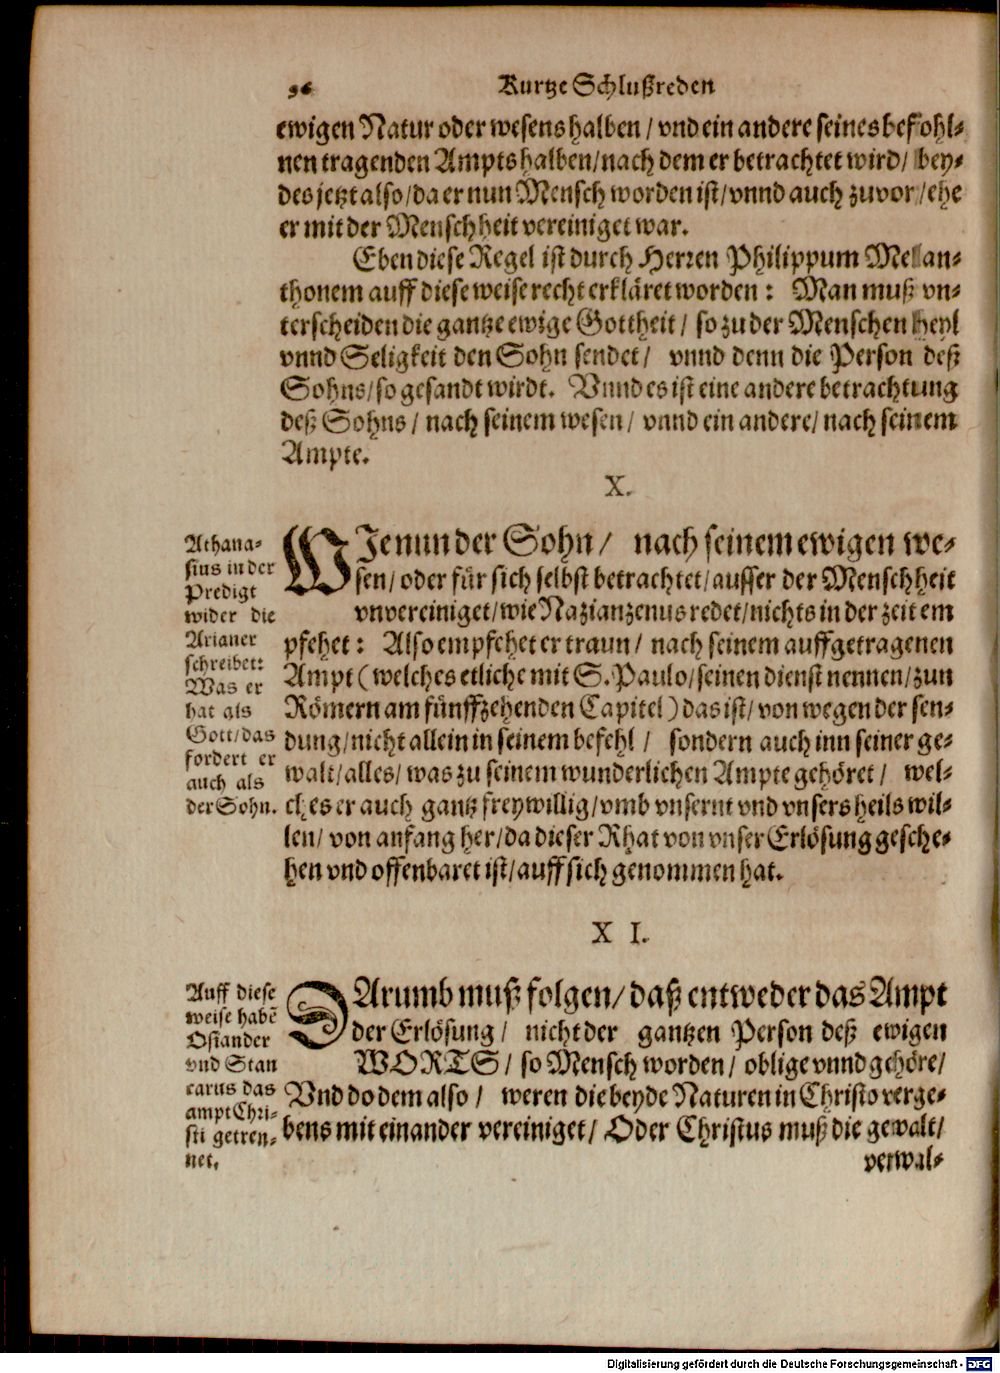 96 Kurtze Schlußreden
ewigen Natur oder wesens halben / vnd ein andere seines befohl-
nen tragenden Ampts halben / nach dem er betrachtet wird / bey-
des jetzt also / da er nun Mensch worden ist / vnnd auch zuvor / ehe
er mit der Menschheit vereiniget war.
Eben diese Regel ist durch Herren Philippum Melan-
thonem auff diese weise recht erkläret worden: Man muß vn-
terscheiden die gantze ewige Gottheit / so zu der Menschen heyl
vnnd Seligkeit den Sohn sendet / vnnd denn die Person deß
Sohns / so gesandt wirdt. Vnnd es ist eine andere betrachtung
deß Sohns / nach seinem wesen / vnnd ein andere / nach seinem
Ampte.
X.
WJe nun der Sohn / nach seinem ewigen we-
sen / oder für sich selbst betrachtet / ausser der Menschheit
vnvereiniget / wie Nazianzenus redet / nichts in der zeit em
pfehet: Also empfehet er traun / nach seinem auffgetragenen
Ampt (welches etliche mit S. Paulo / seinen dienst nennen / zun
Römern am fünffzehenden Capitel) das ist / von wegen der sen-
dung / nicht allein in seinem befehl / sondern auch inn seiner ge-
walt / alles / was zu seinem wunderlichen Ampte gehöret / wel-
ches er auch gantz freywillig / vmb vnsernt vnd vnsers heils wil-
len / von anfang her / da dieser Rhat von vnser Erlösung gesche-
hen vnd offenbaret ist / auff sich genommen hat.
Athana-
sius in der
Predigt
wider die
Arianer
schreibet:
Was er
hat als
Gott / das
fordert er
auch als
der Sohn.
X I.
DArumb muß folgen / daß entweder das Ampt
der Erlösung / nicht der gantzen Person deß ewigen
WORTS / so Mensch worden / oblige vnnd gehöre /
Vnd do dem also / weren die beyde Naturen in Christo verge-
bens mit einander vereiniget / Oder Christus muß die gewalt /
verwal-
Auff diese
weise habē
Osiander
vnd Stan
carus das
ampt Chri-
sti getren-
net.
Digitalisierung gefördert durch die Deutsche Forschungsgemeinschaft - DFG